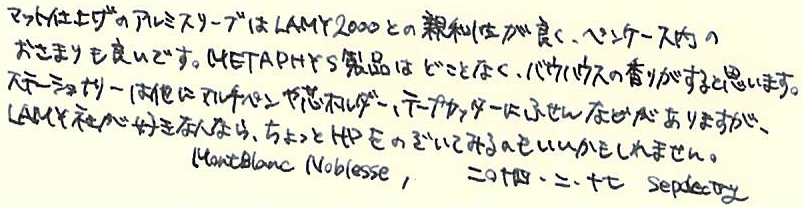 マット仕上げのアルミスリーブはLAMY2000との親和性が良く、ペンケース内の
おさまりも良いです。METAPHYS製品はどことなく、バウハウスの香りがすると思います。
ステーショナリーは他にマルチペンや芯ホルダー、テープカッターにふせんなどがありますが、
LAMY社が好きなんなら、ちょっとHPをのぞいてみるのもいいかもしれません。
MontBlanc Noblesse, 二〇十四・二・十七